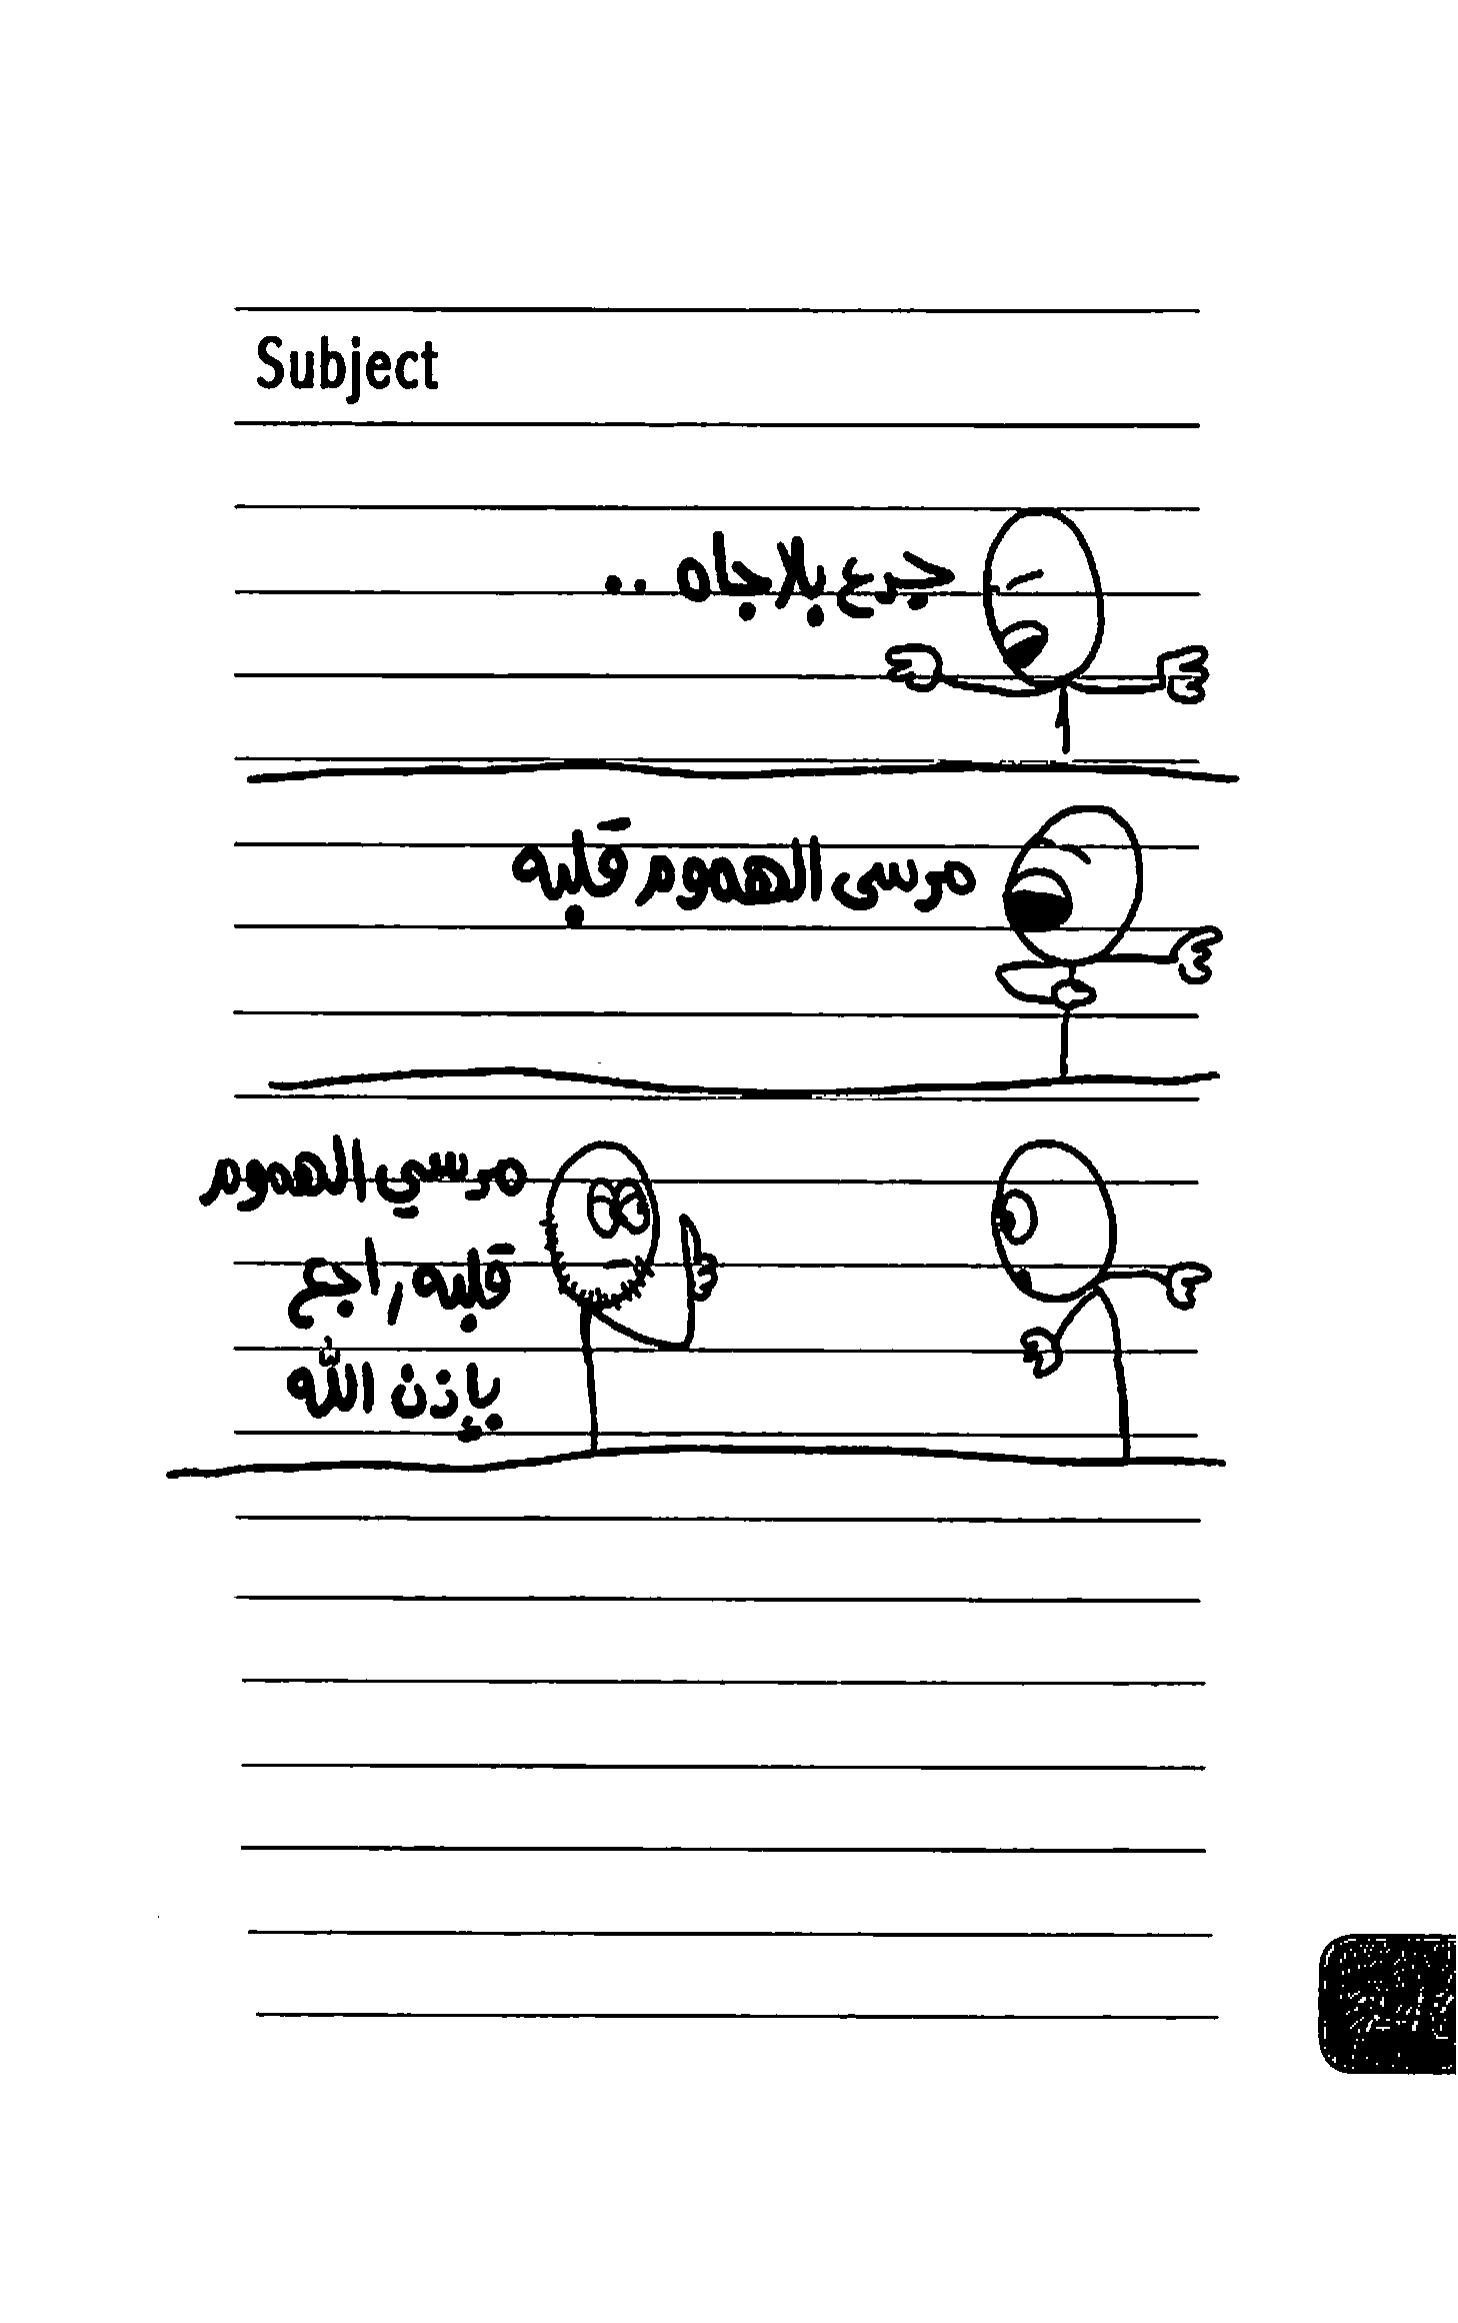 Subject
جدع بلا جاه ..
مرسى الهموم قلبه
مرسي الهموم
قلبه راجع
بإذن الله